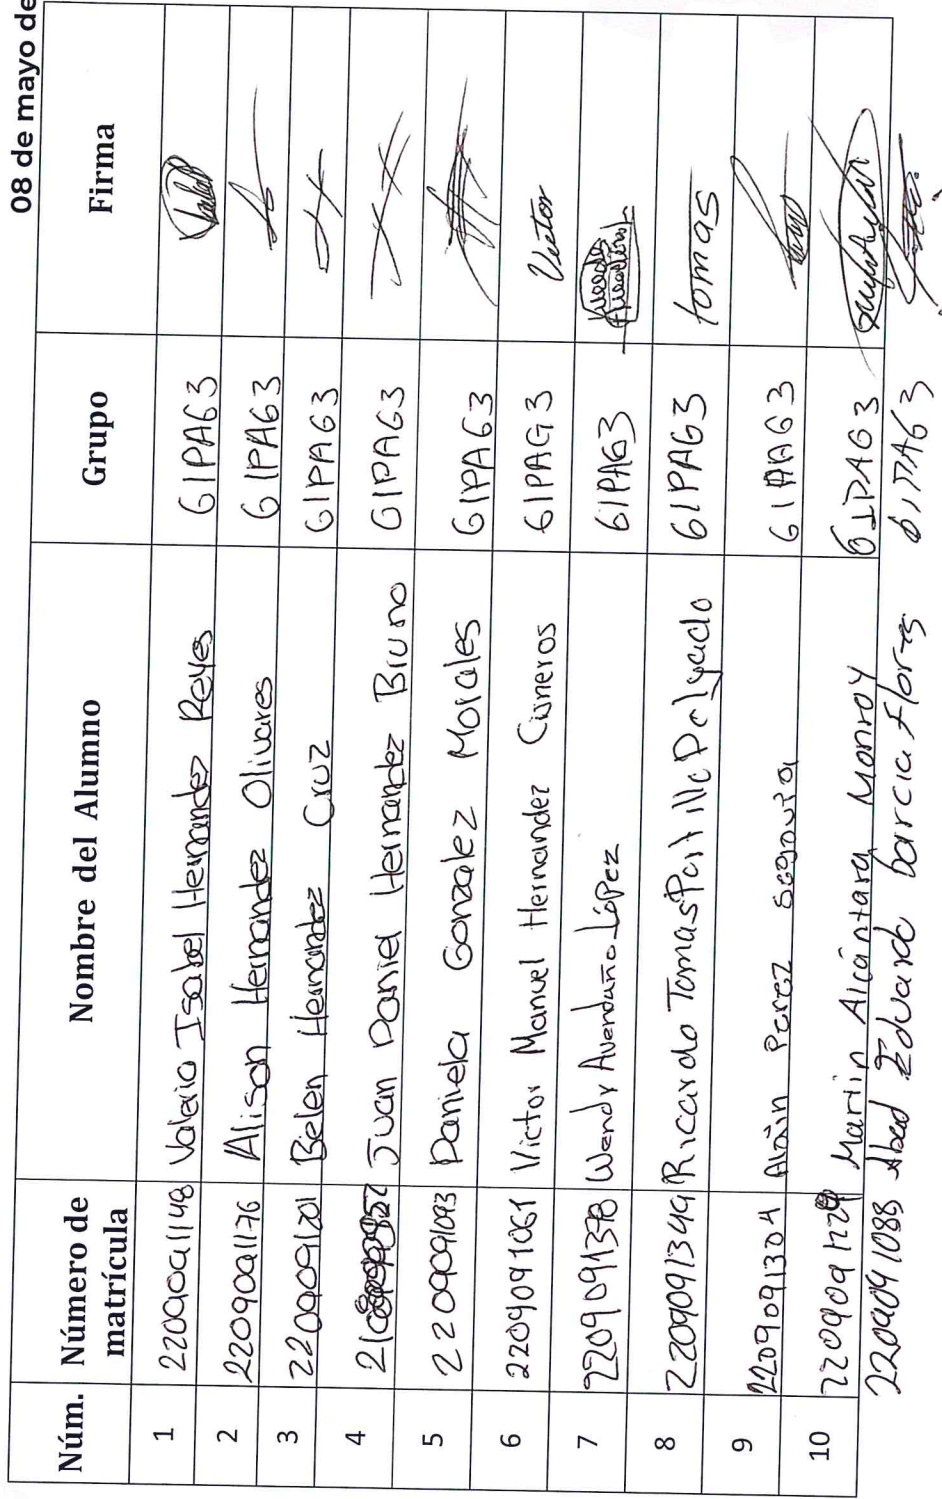 08 de mayo de
Núm. Número de matrícula Nombre del Alumno Grupo Firma
1 2209091148 Valeria Isabel Hernandez Reyes 61PAG3
2 2209091176 Alison Hernandez Olivares 61PAG3
3 2209091201 Belen Hernandez Cruz 61PAG3
4 Juan Daniel Hernandez Bruno 61PAG3
5 2209091093 Daniela Gonzalez Morales 61PAG3
6 2209091061 Victor Manuel Hernandez Cisneros 61PAG3 Victor
7 2209091378 Wendy Avendaño López 61PAG3
8 2209091349 Ricardo Tomas Portillo Delgado 61PAG3 tomas
9 2209091304 Alain Perez Segovia 61PAG3
10 Martin Alcántara Monroy 61PAG3
2209091088 Abad Eduardo Garcia Flores 61PAG3